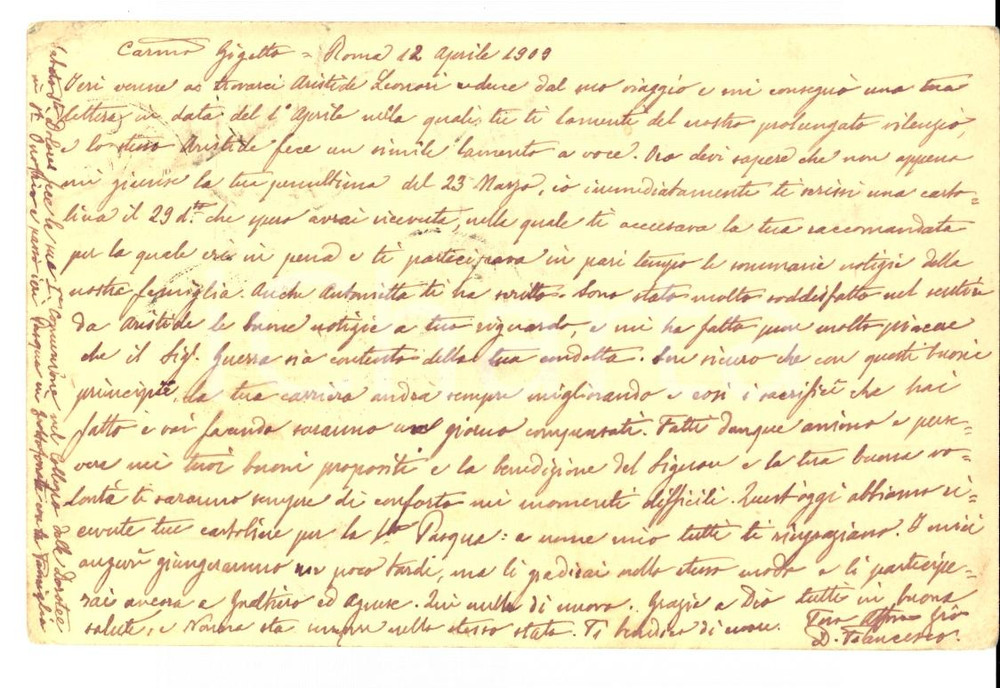 Carmo Gigetto = Roma 12 Aprile 1909
Ieri venne a trovarci Aristide Leonori reduce dal suo viaggio e mi consegnò una tua
lettera in data del 1° Aprile nella quale tu ti lamente del nostro prolungato silenzio,
e lo stesso Aristide fece un simile lamento a voce. Ora devi sapere che non appena
mi giunse la tua penultima del 23 Marzo, io immediatamente ti scrissi una carto=
lina il 29 dto che spero avrai ricevuta, nelle quale ti accusava la tua raccomandata
per la quale eri in pena e ti partecipava in pari tempo le sommarie notizie della
nostra famiglia. Anche Antonietta ti ha scritto. Sono stato molto soddisfatto nel sentire
da Aristide le buone notizie a tuo riguardo, e mi ha fatto pure molto piacere
che il Sigr. Guerra sia contento della tua condotta. Son sicuro che con questi buoni
principii, la tua carriera andrà sempre migliorando e così i sacrifici che hai
fatto e vai facendo saranno un giorno compensati. Fatti dunque animo e perse=
vera nei tuoi buoni propositi e la benedizione del Signore e la tua buona vo=
lontà ti saranno sempre di conforto nei momenti difficili. Quest'oggi abbiamo ri=
cevute tue cartoline per la Sta Pasqua: a nome mio tutti ti ringraziano. I miei
augurî giungeranno un poco tardi, ma li gradirai nello stesso modo e li partecipe=
rai ancora a Gualtiero ed Agnese. Qui nulla di nuovo. Grazie a Dio tutti in buona
salute, e Nonna sta sempre nello stesso stato. Ti benedico di cuore. Tuo Affmo Zio
D. Francesco.
Sabato fece la sua 1a Comunione nel Collegio delle Dorotee
in St Onofrio e passò ieri Pasqua in con la famiglia